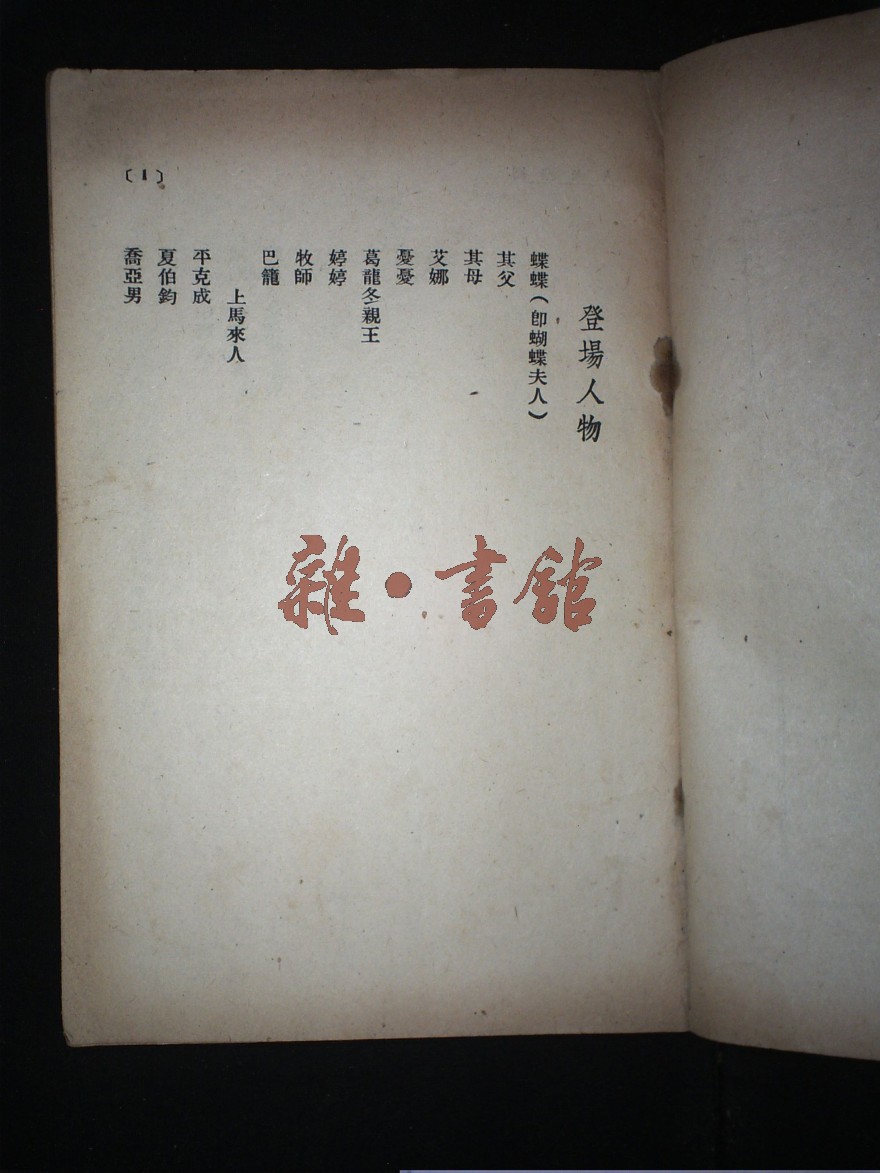 登場人物
蝶蝶（卽蝴蝶夫人）
其父
其母
艾娜
憂憂
葛龍冬親王
婷婷
牧師
巴籠
上馬來人
平克成
夏伯鈞
喬亞男
〔1〕
雜·書館